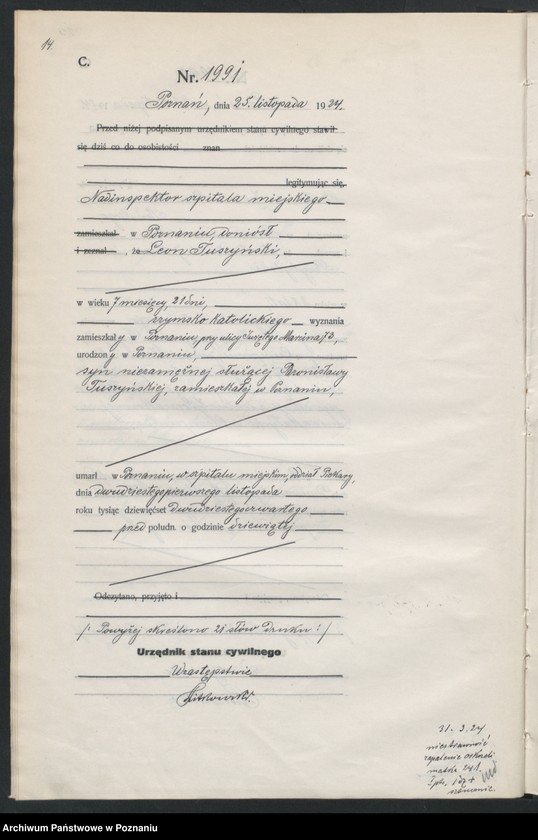 14.
C.
Nr. 1991
Poznań, dnia 25. listopada 1924.
Przed niżej podpisanym urzędnikiem stanu cywilnego stawił
się dziś co do osobistości znan
legitymując się
Nadinspektor szpitala miejskiego
zamieszkał w Poznaniu, doniósł
i zeznał, że Leon Tuszyński,
w wieku 7 miesięcy, 21 dni,
rzymsko katolickiego wyznania
zamieszkały w Poznaniu, przy ulicy Świętego Marcina 73,
urodzony w Poznaniu,
syn niezamężnej służącej Bronisławy
Tuszyńskiej, zamieszkałej w Poznaniu,
umarł w Poznaniu, w szpitalu miejskim, oddział
dnia dwudziestegopierwszego listopada
roku tysiąc dziewięćset dwudziestegoczwartego
przed połudn. o godzinie dziewiątej
Odczytano, przyjęto i
/: Powyżej skreślono 21 słów druku :/
Urzędnik stanu cywilnego
W zastępstwie
31. 3. 24
niestrawność
zapalenie oskrzeli
matka 24 l.
Archiwum Państwowe w Poznaniu